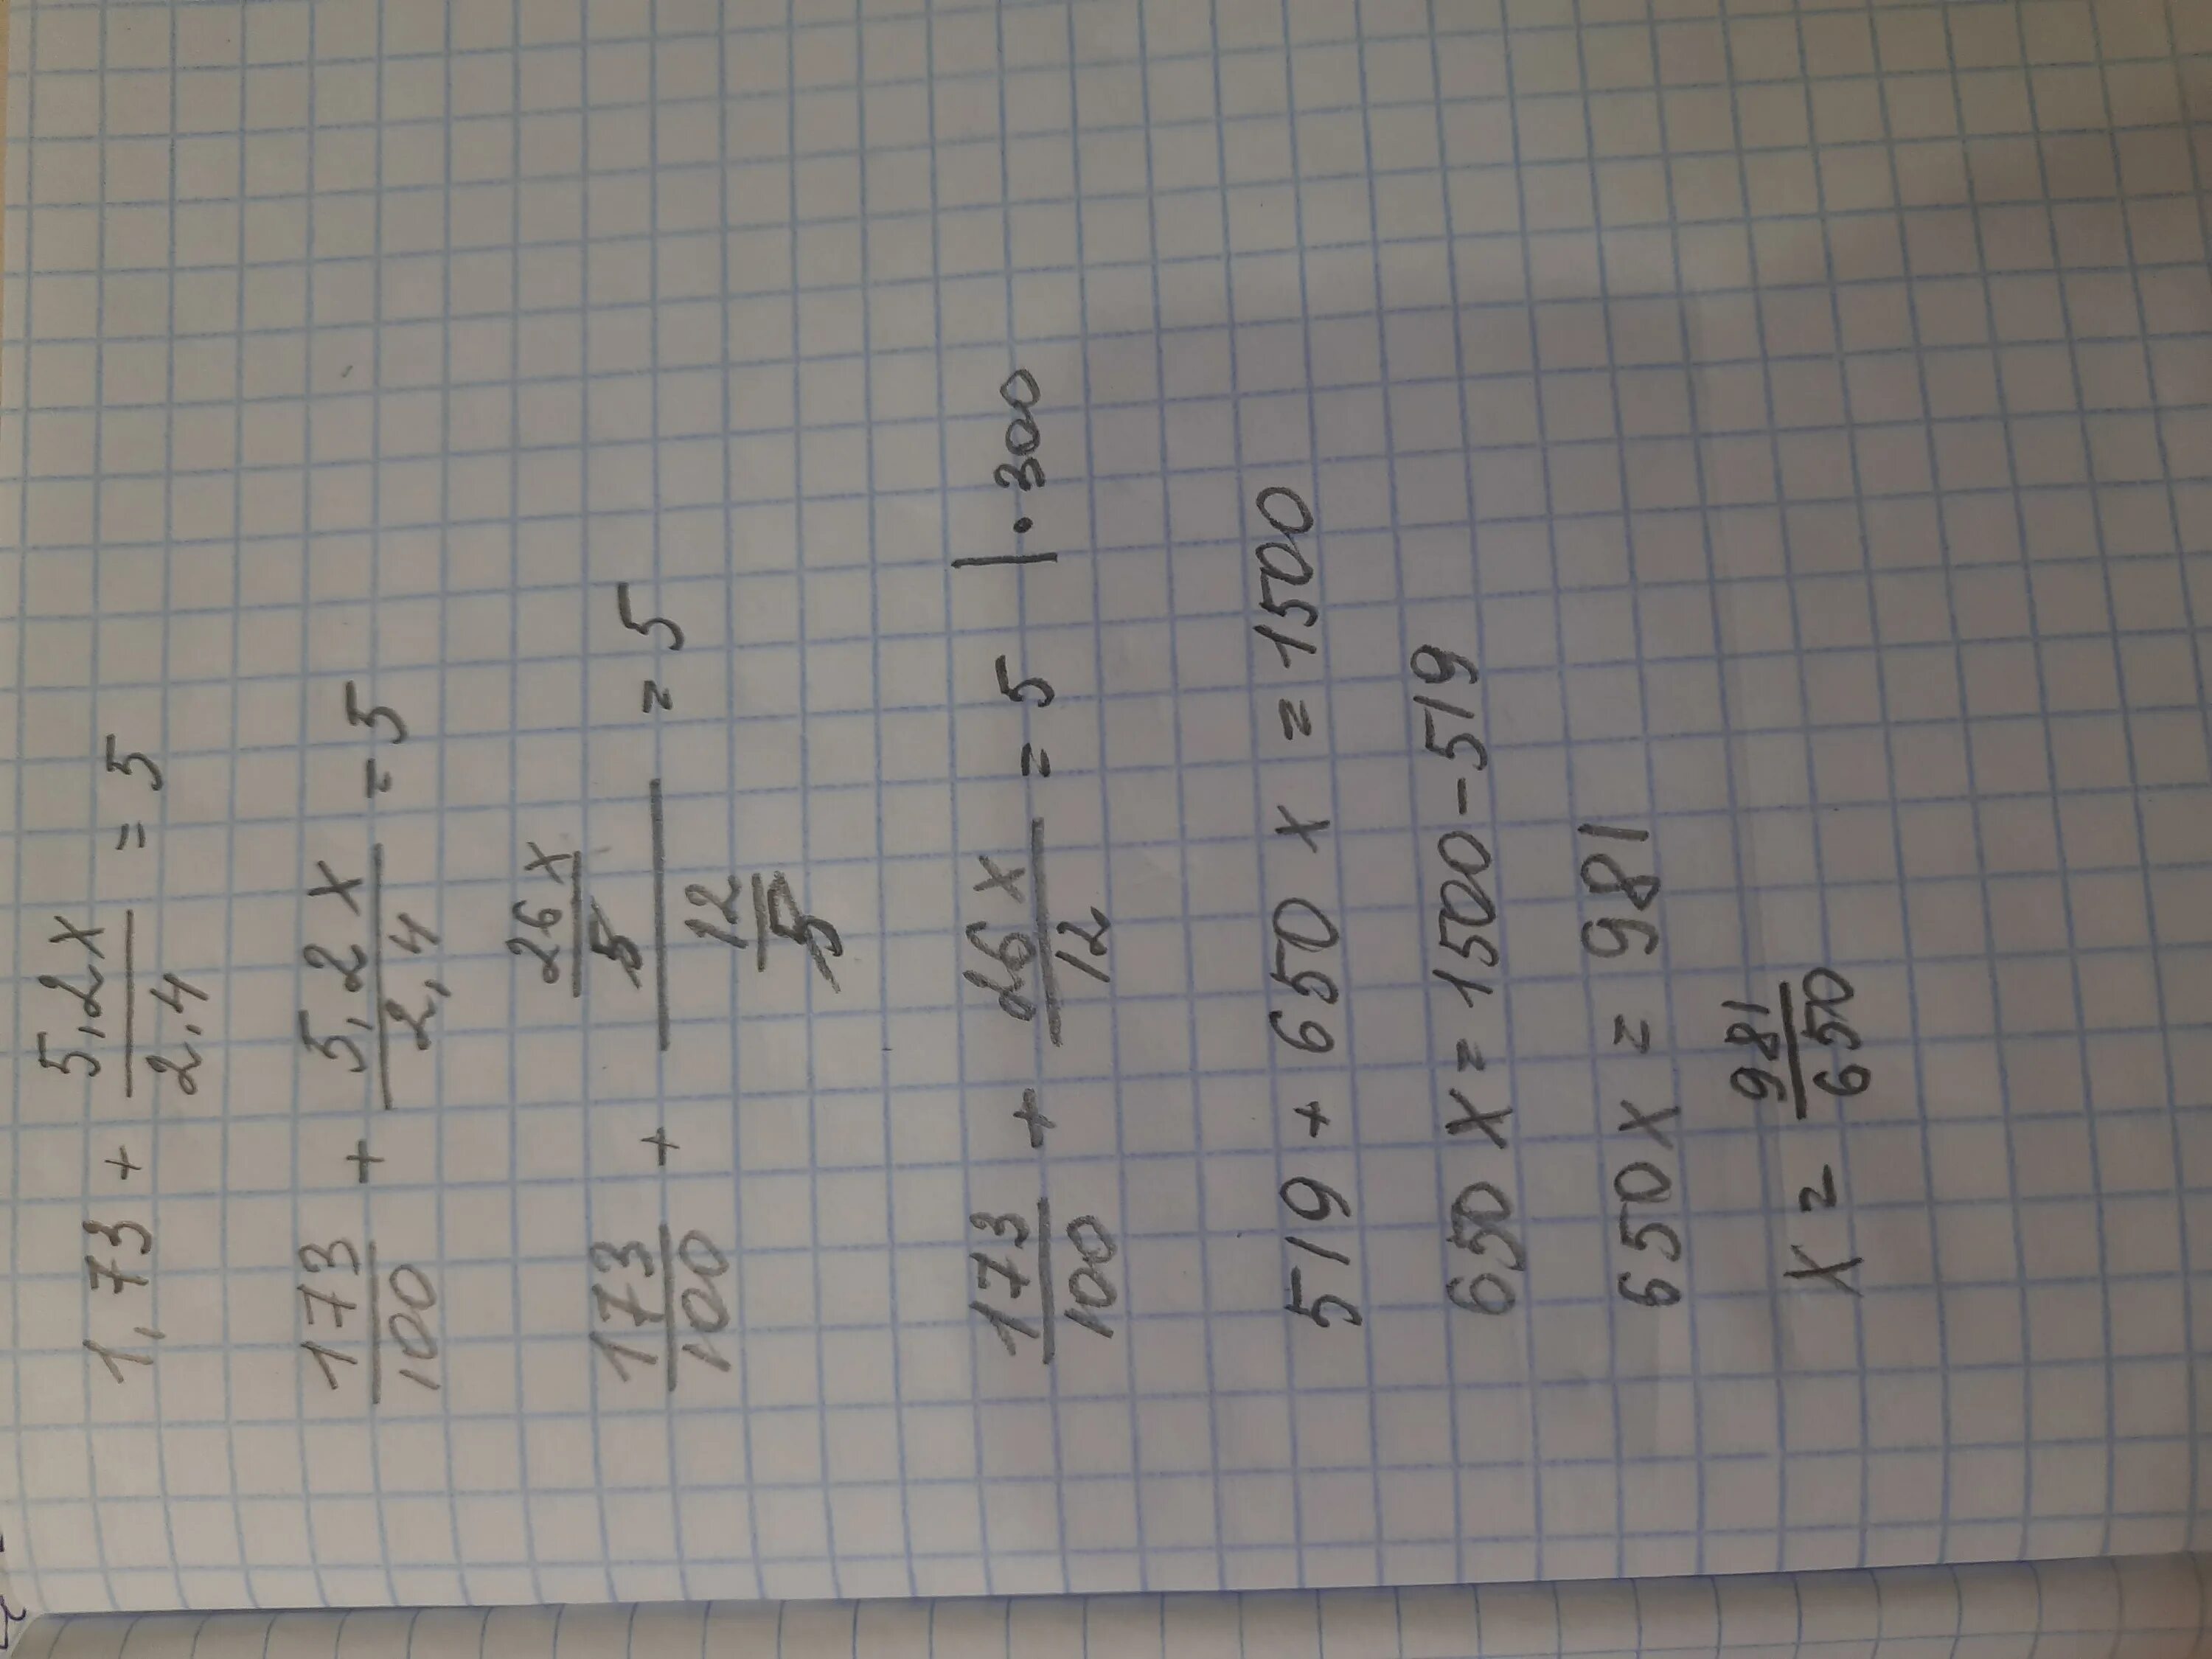 1,73 + 5,2x/2,4 = 5
173/100 + 5,2x/2,4 = 5
173/100 + (26x/5)/(12/5) = 5
173/100 + 26x/12 = 5 | · 300
519 + 650x = 1500
650x = 1500 - 519
650x = 981
x = 981/650